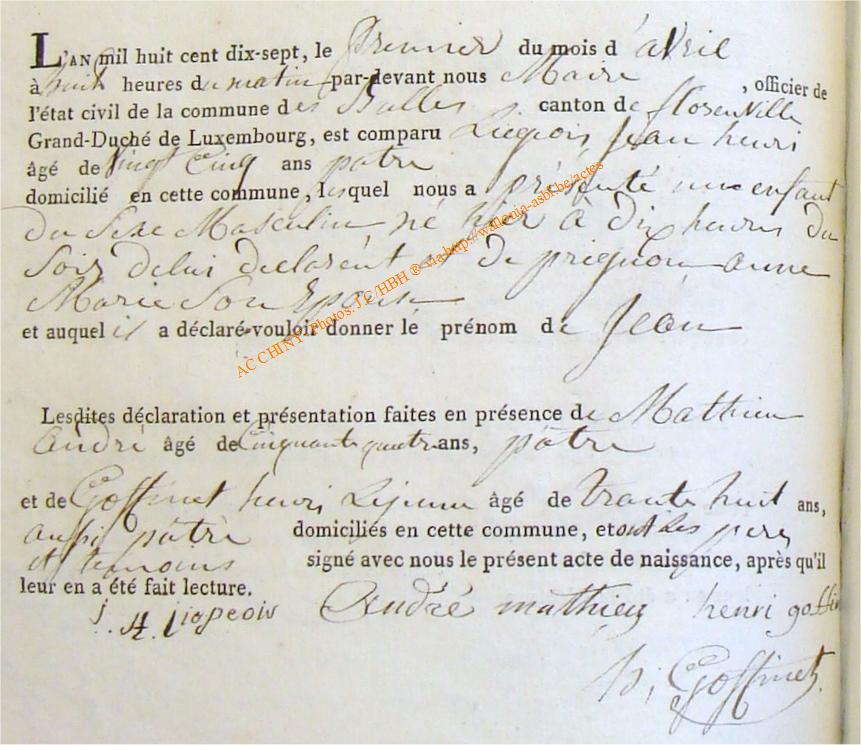 L'AN mil huit cent dix-sept, le premier du mois d'avril
à huit heures du matin par-devant nous Maire , officier de
l'état civil de la commune des Bulles canton de florenville
Grand-Duché de Luxembourg, est comparu Liegiois Jean henri
âgé de vingt Cinq ans pâtre
domicilié en cette commune, lesquel nous a présenté un enfant
du Sexe Masculin né hier à dix heures du
Soir delui declarent et de prignon anne
Marie Son Epouse
et auquel il a déclaré vouloir donner le prénom de Jean
AC CHINY - Photos: J C/HBH ® via http://wallonia-asbl.be/actes
Lesdites déclaration et présentation faites en présence de Mathieu
andré âgé de Cinquante quatre ans, pâtre
et de Goffinet henri Lejeune âgé de trante huit ans,
aussi pâtre domiciliés en cette commune, et ont les pere
et temoins signé avec nous le présent acte de naissance, après qu'il
leur en a été fait lecture.
j. H. liegeois André mathieu henri goffin
h; Goffinet.